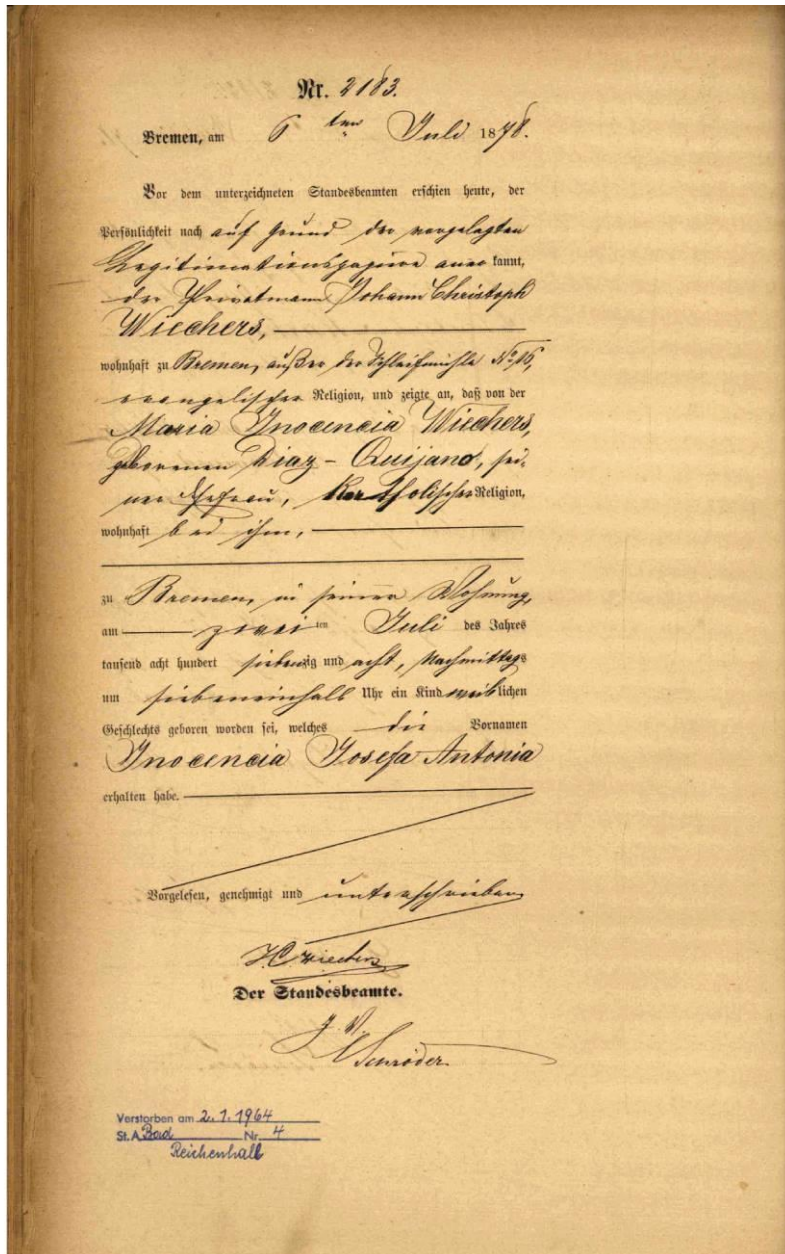 Nr. 2183.
Bremen, am 6 ten Juli 1878.
Vor dem unterzeichneten Standesbeamten erschien heute, der
Persönlichkeit nach auf Grund der vorgelegten
Legitimationspapiere anerkannt,
der Privatmann Johann Christoph
Wiechers,
wohnhaft zu Bremen, außer der Schleifmühle No. 16,
evangelischer Religion, und zeigte an, daß von der
Maria Inocencia Wiechers,
geborenen Diaz-Quijano, sei-
ner Ehefrau, katholischer Religion,
wohnhaft bei ihm,
zu Bremen, in seiner Wohnung,
am zweiten Juli des Jahres
tausend acht hundert siebenzig und acht, Nachmittags
um siebeneinhalb Uhr ein Kind weiblichen
Geschlechts geboren worden sei, welches die Vornamen
Inocencia Josefa Antonia
erhalten habe.
Vorgelesen, genehmigt und unterschrieben
J C Wiechers
Der Standesbeamte.
J. V.
Schröder.
Verstorben am 2.1.1964
St. A. Bad Nr. 4
Reichenhall